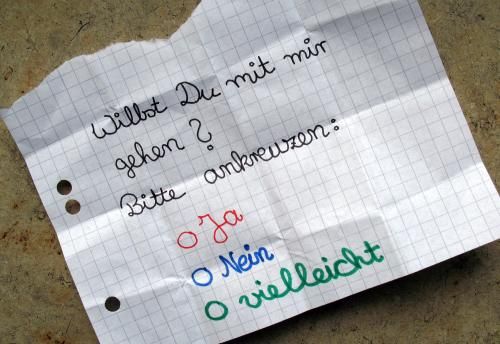 Willst Du mit mir
gehen?
Bitte ankreuzen:
O Ja
O Nein
O vielleicht